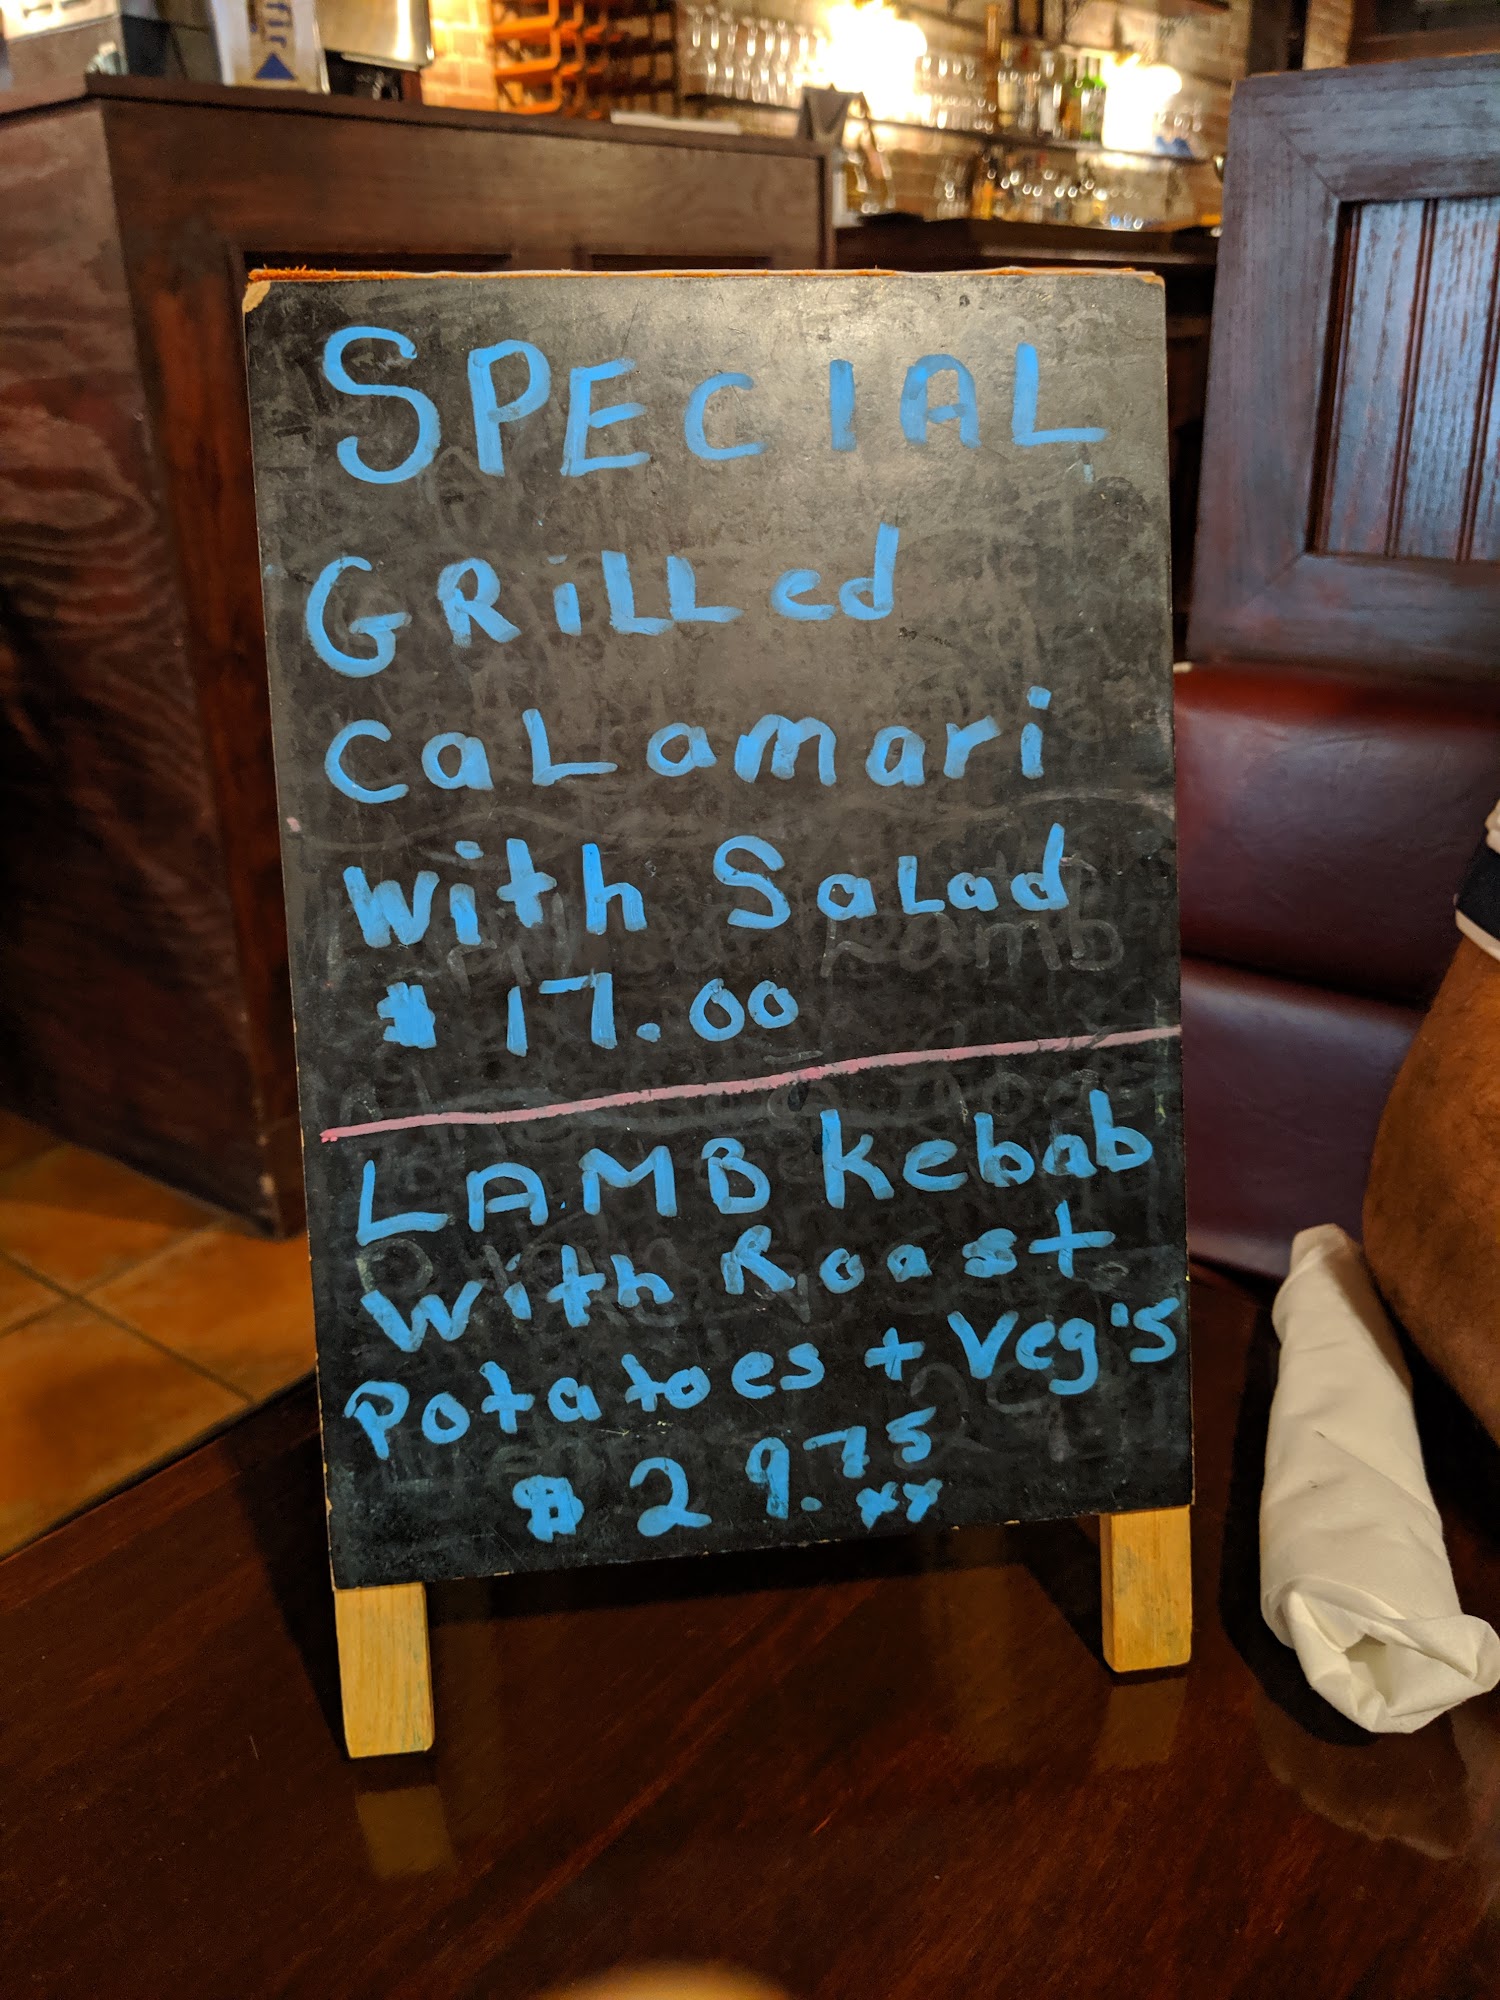 SPECIAL
GRiLLed
CaLamari
With Salad
$ 17.00
LAMB Kebab
With Roast
Potatoes + Veg's
$ 29.75